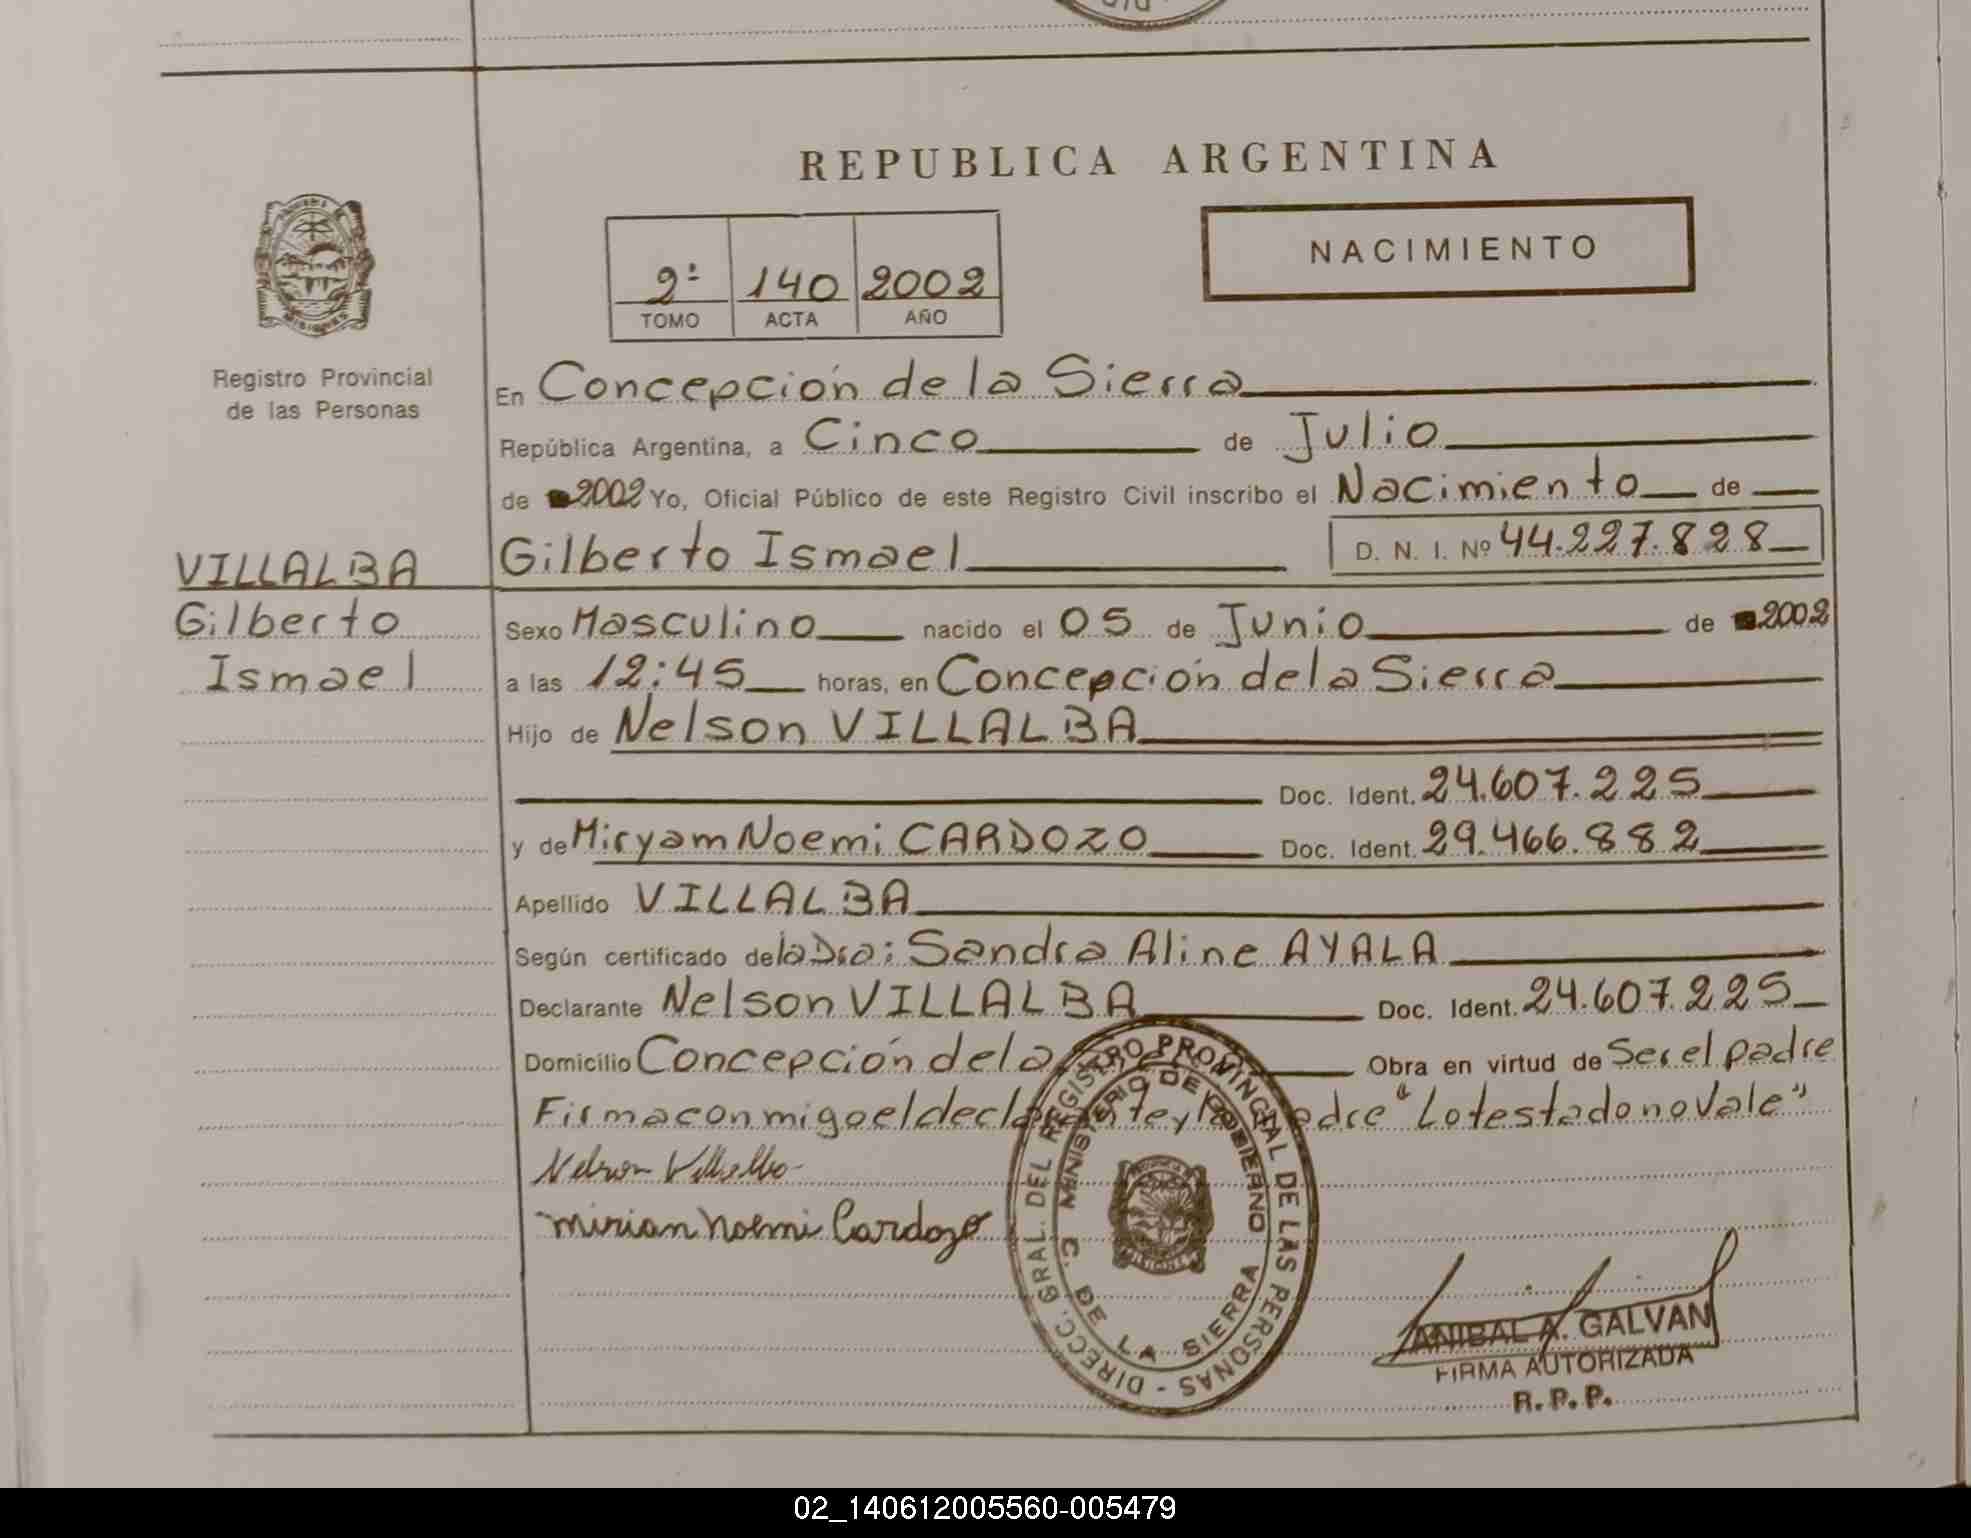 REPUBLICA ARGENTINA
NACIMIENTO
2º 140 2002
TOMO ACTA AÑO
MISIONES
Registro Provincial
de las Personas
En Concepción de la Sierra
República Argentina, a Cinco de Julio
de 2002 Yo, Oficial Público de este Registro Civil inscribo el Nacimiento de
VILLALBA
Gilberto
Ismael
Gilberto Ismael D. N. I. Nº 44.227.828
Sexo Masculino nacido el 05 de Junio de 2002
a las 12:45 horas, en Concepción de la Sierra
Hijo de Nelson VILLALBA
Doc. Ident. 24.607.225
y de Miryam Noemi CARDOZO Doc. Ident. 29.466.882
Apellido VILLALBA
Según certificado de la Dra: Sandra Aline AYALA
Declarante Nelson VILLALBA Doc. Ident. 24.607.225
Domicilio Concepción de la Obra en virtud de Ser el padre
Firma conmigo el declarante y la madre "Lo testado no Vale"
Nelson Villalba
Mirian Noemi Cardozo
DIRECC. GRAL. DEL REGISTRO PROVINCIAL DE LAS PERSONAS -
MINISTERIO DE GOBIERNO
C. DE LA SIERRA
MISIONES
ANIBAL A. GALVAN
FIRMA AUTORIZADA
R.P.P.
02_140612005560-005479